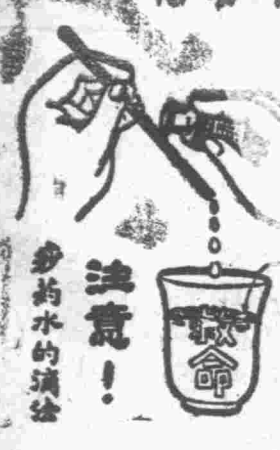 救命
注意！
痧药水的滴法